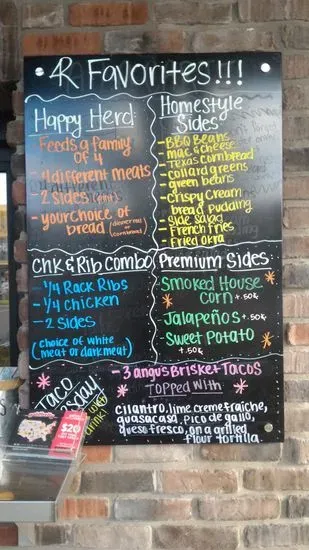 4R Favorites!!!
Happy Herd:
Feeds a family
of 4
- 4 different meats
- 2 sides (pint)
- your choice of
bread (dinner roll or
cornbread)
Homestyle
Sides
- BBQ Beans
- mac & cheese
- Texas cornbread
- collard greens
- green beans
- crispy cream
bread pudding
- side salad
- French fries
- Fried okra
Chk & Rib Combo
- 1/4 Rack Ribs
- 1/4 chicken
- 2 sides
(choice of white
meat or dark meat)
Premium Sides
Smoked House
corn +.50¢
Jalapeños +.50¢
Sweet Potato
+.50¢
Taco
drink!
$20
- 3 angus Brisket Tacos
Topped with
cilantro, lime creme fraiche,
guasacasa, pico de gallo,
queso fresco, on a grilled
flour tortilla.